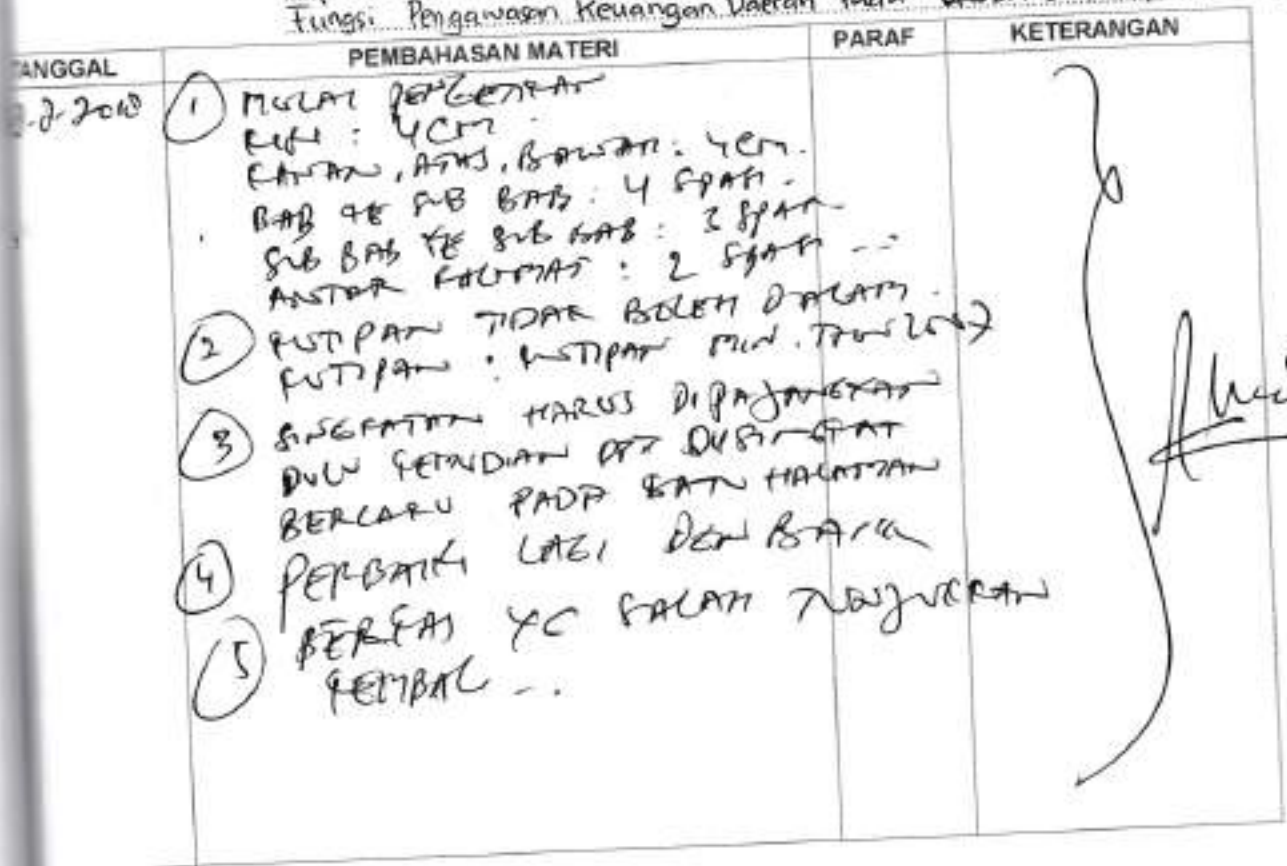 Fungsi Pengawasan Keuangan Daerah Pada
TANGGAL PEMBAHASAN MATERI PARAF KETERANGAN
1 MULAI PENGETIKAN
KIRI : 4 CM .
KANAN, ATAS, BAWAH : 4 CM.
BAB KE SUB BAB : 4 SPASI .
SUB BAB KE SUB BAB : 3 SPASI
ANTAR KALIMAT : 2 SPASI ...
2 KUTIPAN TIDAK BOLEH DALAM .
KUTIPAN : KUTIPAN MIN . TAHUN 2007
3 SINGKATAN HARUS DIPAJANGKAN
DULU KEMUDIAN DPT DISINGKAT
BERLAKU PADA SATU HALAMAN
4 PERBAIKI LAGI DGN BAIK
5 BERKAS YG SALAH TUNJUKKAN
KEMBALI ...